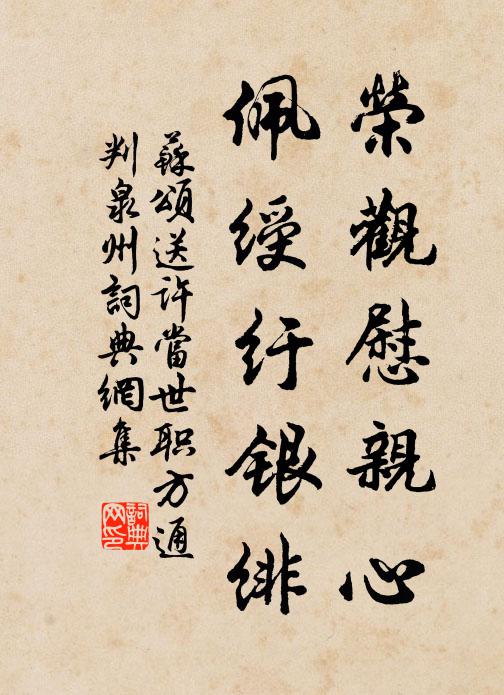 榮觀慰親心
佩綬纡銀緋
蘇頌送許當世职方通
判泉州詞典網集
詞典
网印